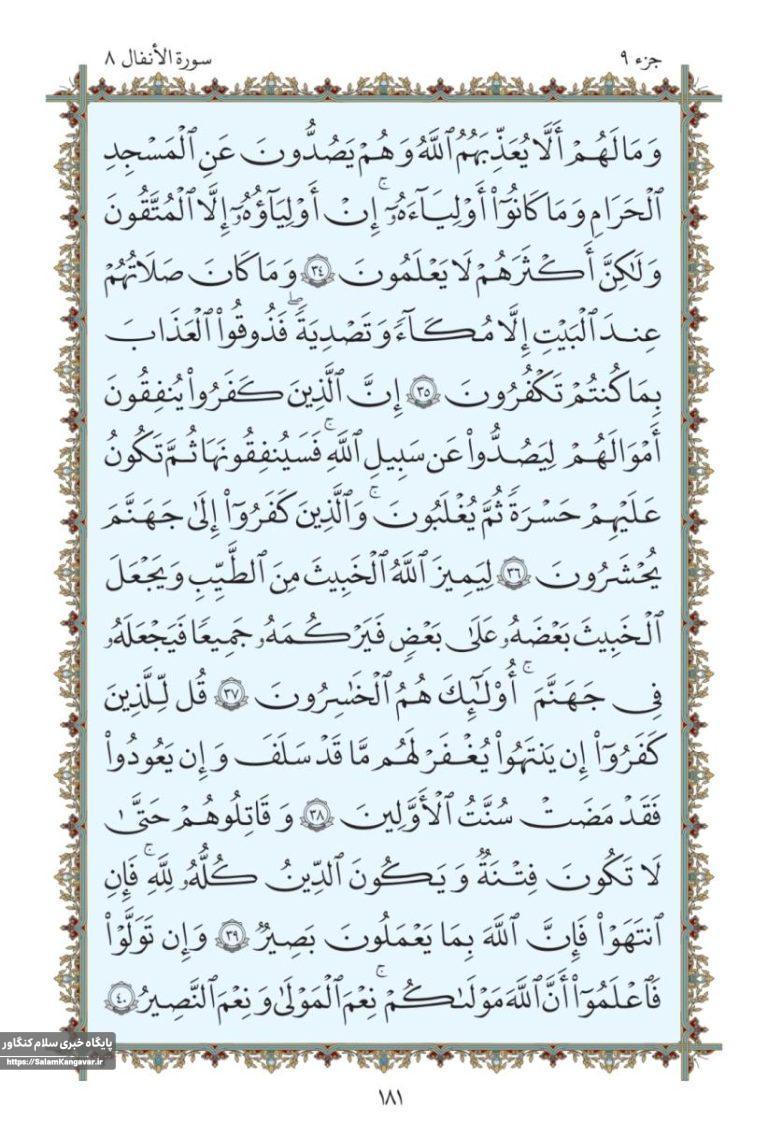 جزء ٩
سورة الأنفال ٨
وَمَا لَهُمْ أَلَّا يُعَذِّبَهُمُ ٱللَّهُ وَهُمْ يَصُدُّونَ عَنِ ٱلْمَسْجِدِ
ٱلْحَرَامِ وَمَا كَانُوٓا۟ أَوْلِيَآءَهُۥٓ ۚ إِنْ أَوْلِيَآؤُهُۥٓ إِلَّا ٱلْمُتَّقُونَ
وَلَٰكِنَّ أَكْثَرَهُمْ لَا يَعْلَمُونَ ٣٤ وَمَا كَانَ صَلَاتُهُمْ
عِندَ ٱلْبَيْتِ إِلَّا مُكَآءً وَتَصْدِيَةً ۖ فَذُوقُوا۟ ٱلْعَذَابَ
بِمَا كُنتُمْ تَكْفُرُونَ ٣٥ إِنَّ ٱلَّذِينَ كَفَرُوا۟ يُنفِقُونَ
أَمْوَالَهُمْ لِيَصُدُّوا۟ عَن سَبِيلِ ٱللَّهِ ۚ فَسَيُنفِقُونَهَا ثُمَّ تَكُونُ
عَلَيْهِمْ حَسْرَةً ثُمَّ يُغْلَبُونَ ۚ وَٱلَّذِينَ كَفَرُوٓا۟ إِلَىٰ جَهَنَّمَ
يُحْشَرُونَ ٣٦ لِيَمِيزَ ٱللَّهُ ٱلْخَبِيثَ مِنَ ٱلطَّيِّبِ وَيَجْعَلَ
ٱلْخَبِيثَ بَعْضَهُۥ عَلَىٰ بَعْضٍ فَيَرْكُمَهُۥ جَمِيعًا فَيَجْعَلَهُۥ
فِى جَهَنَّمَ ۚ أُو۟لَٰٓئِكَ هُمُ ٱلْخَٰسِرُونَ ٣٧ قُل لِّلَّذِينَ
كَفَرُوٓا۟ إِن يَنتَهُوا۟ يُغْفَرْ لَهُم مَّا قَدْ سَلَفَ وَإِن يَعُودُوا۟
فَقَدْ مَضَتْ سُنَّتُ ٱلْأَوَّلِينَ ٣٨ وَقَاتِلُوهُمْ حَتَّىٰ
لَا تَكُونَ فِتْنَةٌ وَيَكُونَ ٱلدِّينُ كُلُّهُۥ لِلَّهِ ۚ فَإِنِ
ٱنتَهَوْا۟ فَإِنَّ ٱللَّهَ بِمَا يَعْمَلُونَ بَصِيرٌ ٣٩ وَإِن تَوَلَّوْا۟
فَٱعْلَمُوٓا۟ أَنَّ ٱللَّهَ مَوْلَىٰكُمْ ۚ نِعْمَ ٱلْمَوْلَىٰ وَنِعْمَ ٱلنَّصِيرُ ٤٠
پایگاه خبری سلام کنگاور
https://SalamKangavar.ir
١٨١